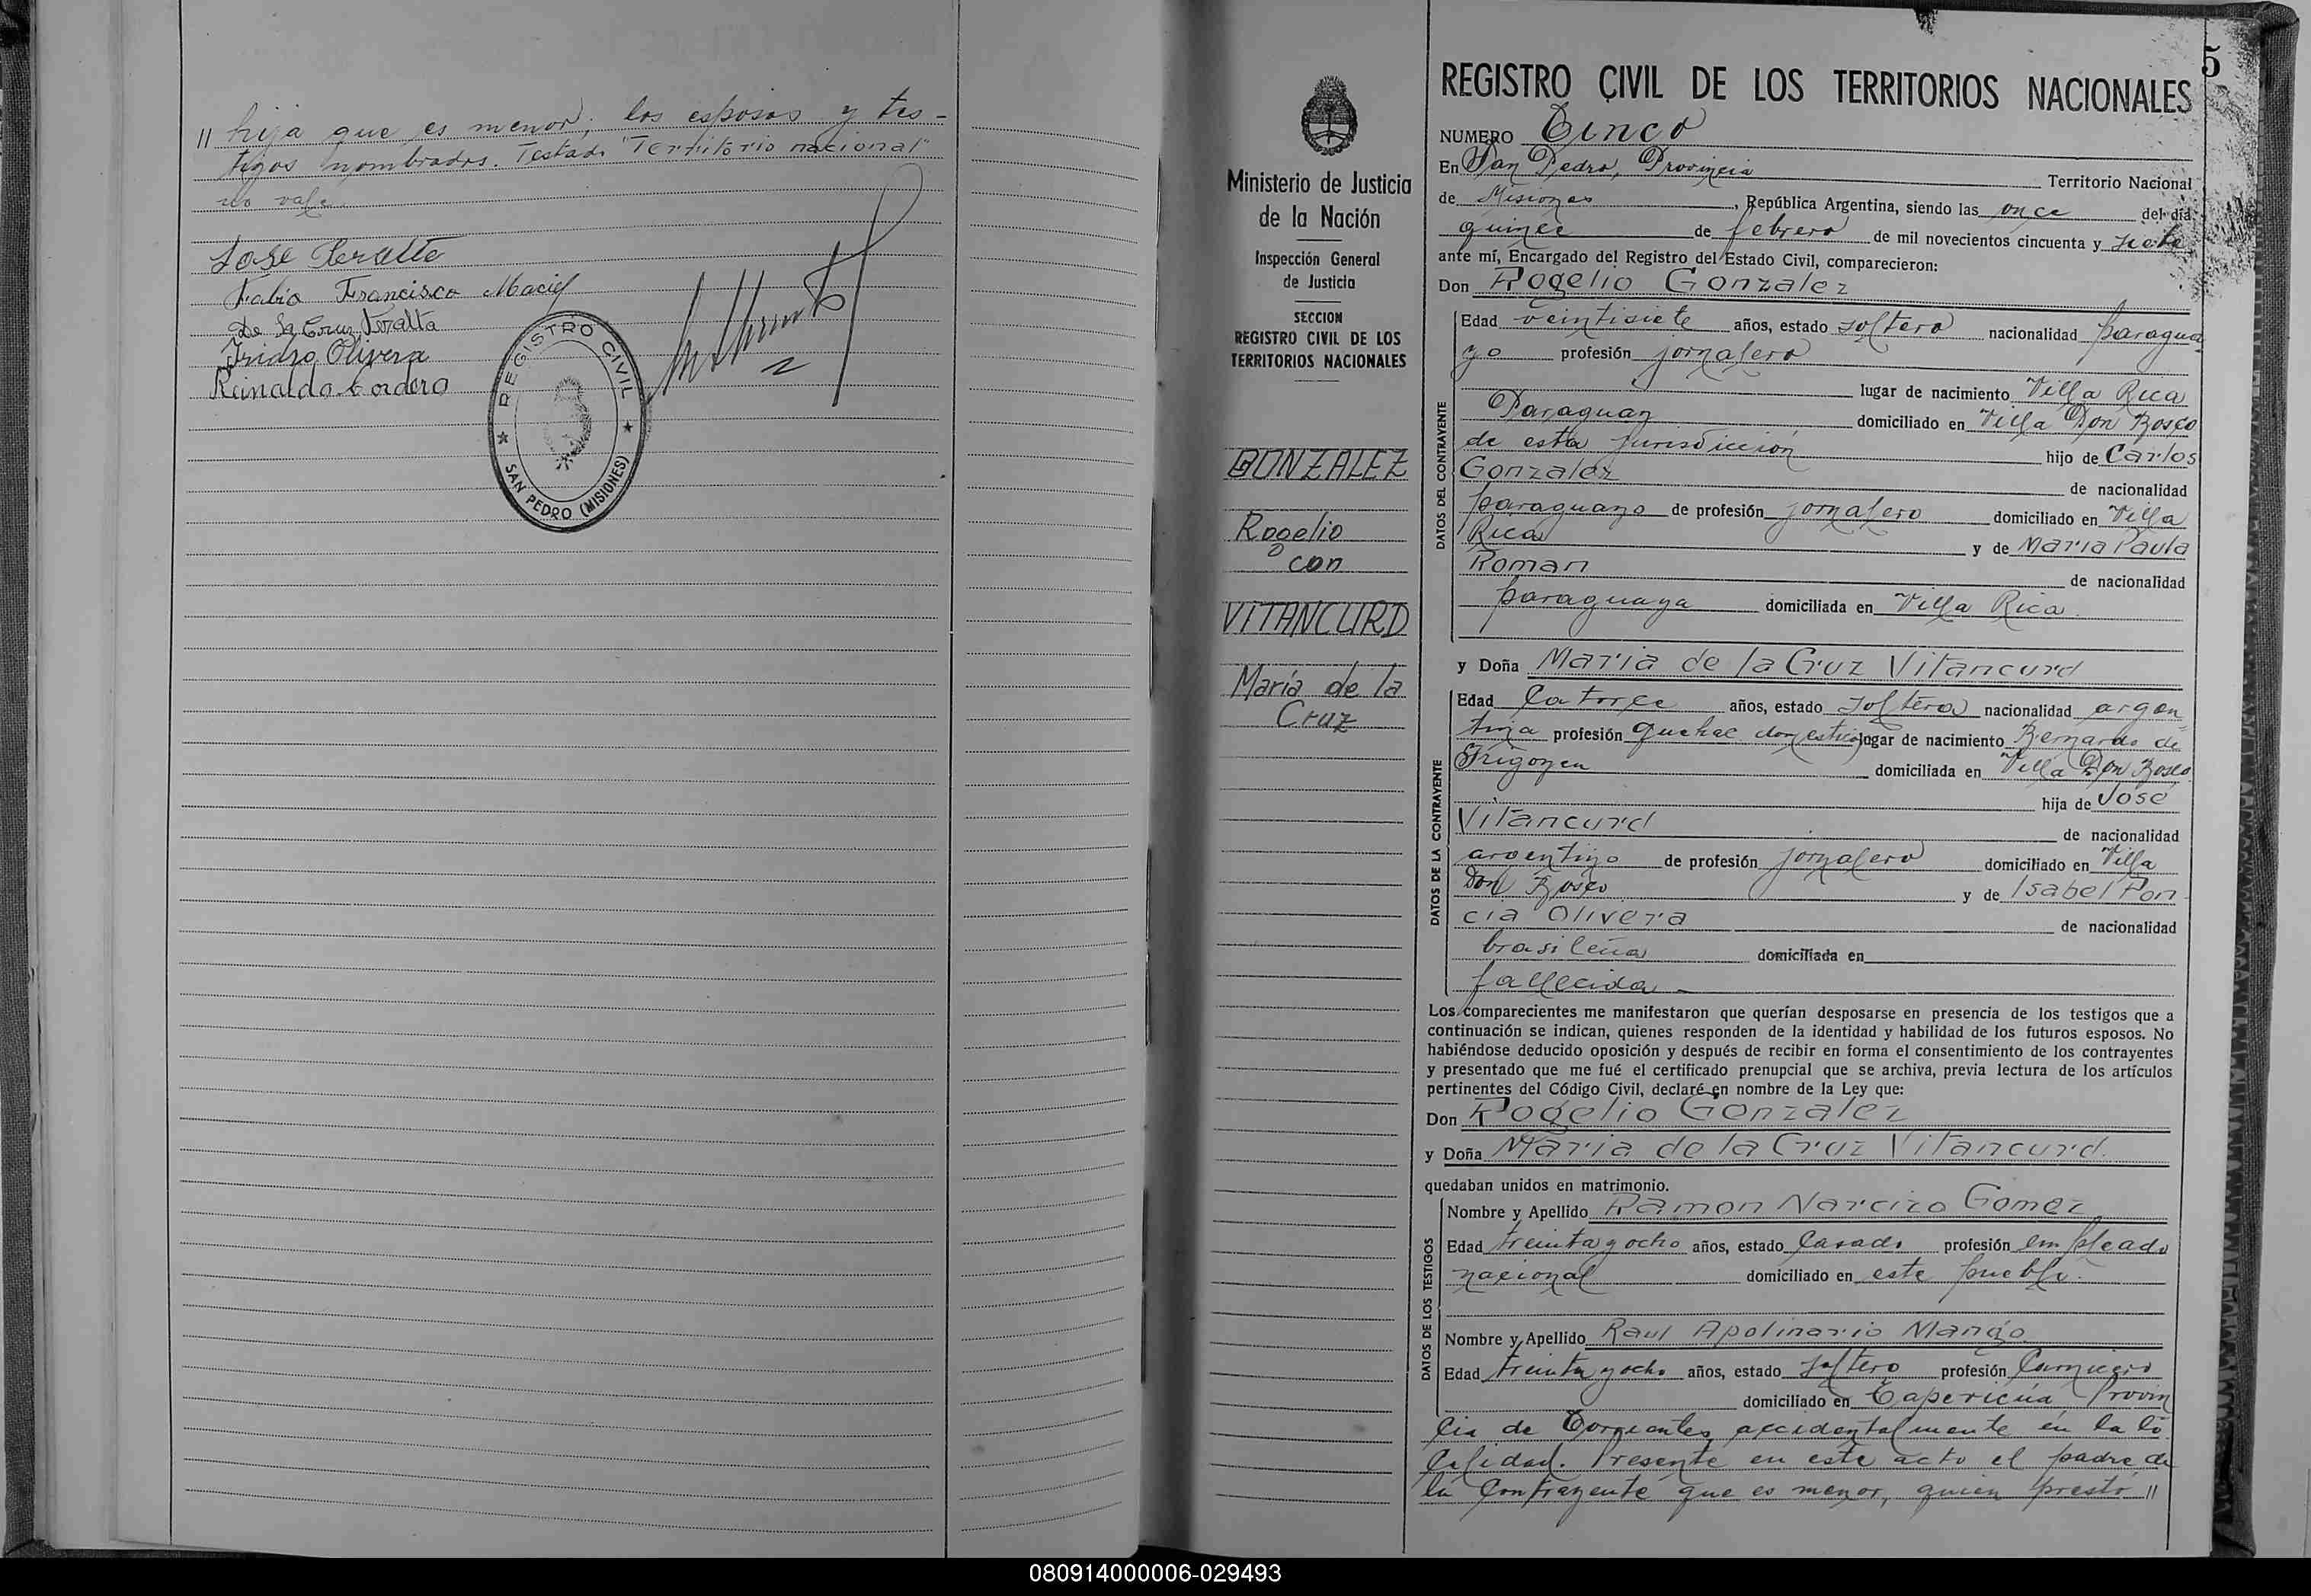 " hija que es menor; los esposos y tes-
tigos nombrados. Testado "Territorio nacional"
no vale.
Jose Peralta
Fabio Francisco Maciel
De la Cruz Peralta
Isidro Olivera
Reinaldo Cordero
REGISTRO CIVIL
SAN PEDRO (MISIONES)
5
Ministerio de Justicia
de la Nación
Inspección General
de Justicia
SECCION
REGISTRO CIVIL DE LOS
TERRITORIOS NACIONALES
GONZALEZ
Rogelio
con
VITANCURD
María de la
Cruz
REGISTRO CIVIL DE LOS TERRITORIOS NACIONALES
NUMERO Cinco
En San Pedro, Provincia Territorio Nacional
de Misiones, República Argentina, siendo las once del día
quince de febrero de mil novecientos cincuenta y siete
ante mí, Encargado del Registro del Estado Civil, comparecieron:
Don Rogelio Gonzalez
DATOS DEL CONTRAYENTE
Edad veintisiete años, estado soltero nacionalidad paragua
yo profesión jornalero
lugar de nacimiento Villa Rica
Paraguay domiciliado en Villa Don Bosco
de esta jurisdicción hijo de Carlos
Gonzalez de nacionalidad
paraguayo de profesión jornalero domiciliado en Villa
Rica y de Maria Paula
Roman de nacionalidad
paraguaya domiciliada en Villa Rica.
y Doña Maria de la Cruz Vitancurd
DATOS DE LA CONTRAYENTE
Edad Catorce años, estado soltera nacionalidad argen
tina profesión quehac domestico lugar de nacimiento Bernardo de
Irigoyen domiciliada en Villa Don Bosco
hija de José
Vitancurd de nacionalidad
argentino de profesión jornalero domiciliado en Villa
Don Bosco y de Isabel Pon
cia Olivera de nacionalidad
brasileña domiciliada en
fallecida -
Los comparecientes me manifestaron que querían desposarse en presencia de los testigos que a
continuación se indican, quienes responden de la identidad y habilidad de los futuros esposos. No
habiéndose deducido oposición y después de recibir en forma el consentimiento de los contrayentes
y presentado que me fué el certificado prenupcial que se archiva, previa lectura de los artículos
pertinentes del Código Civil, declaré en nombre de la Ley que:
Don Rogelio Gonzalez
y Doña Maria de la Cruz Vitancurd.
quedaban unidos en matrimonio.
DATOS DE LOS TESTIGOS
Nombre y Apellido Ramon Narcizo Gomez
Edad treinta y ocho años, estado Casado profesión empleado
nacional domiciliado en este pueblo.
Nombre y Apellido Raul Apolinario Mango
Edad treinta y ocho años, estado soltero profesión Carnicero
domiciliado en Capericúa Provin
cia de Corrientes accidentalmente en la lo
calidad. Presente en este acto el padre de
la Contrayente que es menor, quien prestó "
080914000006-029493